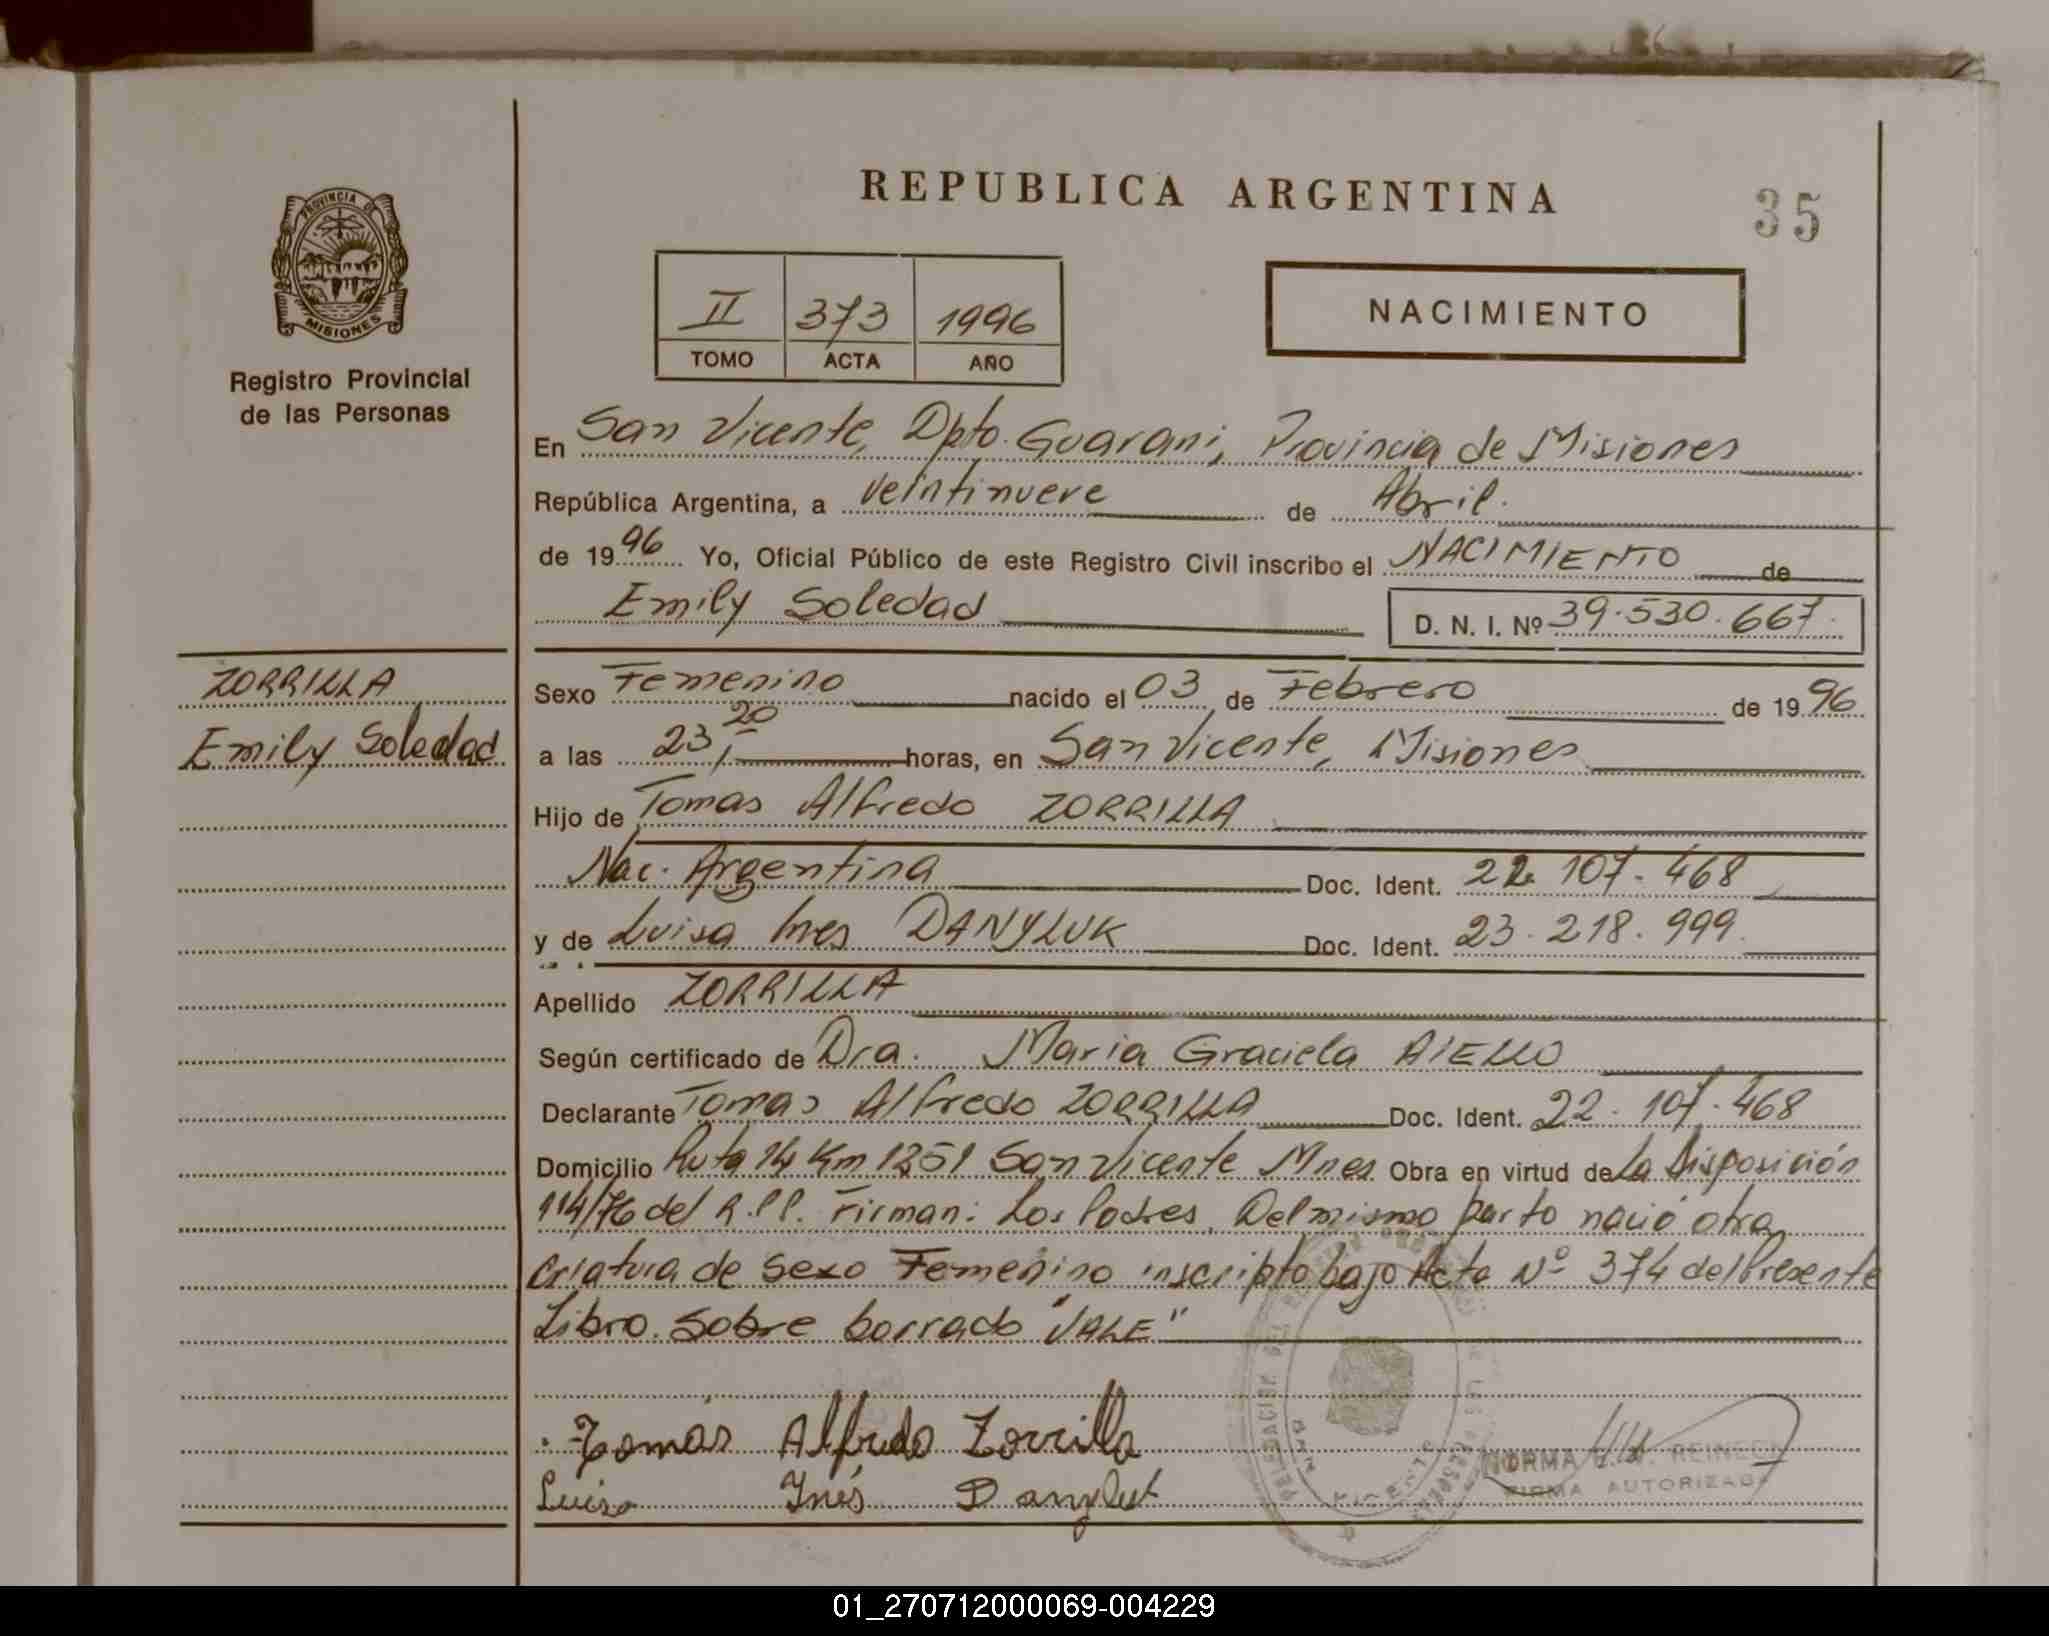 REPUBLICA ARGENTINA
35
PROVINCIA DE
MISIONES
Registro Provincial
de las Personas
II 373 1996
TOMO ACTA AÑO
NACIMIENTO
En San Vicente, Dpto. Guarani, Provincia de Misiones
República Argentina, a veintinueve de Abril.
de 1996 Yo, Oficial Público de este Registro Civil inscribo el NACIMIENTO de
Emily Soledad D. N. I. Nº 39.530.667.
ZORRILLA
Emily Soledad
Sexo Femenino nacido el 03 de Febrero de 1996
a las 23,20 horas, en San Vicente, Misiones
Hijo de Tomas Alfredo ZORRILLA
Nac. Argentina Doc. Ident. 22.107.468
y de Luisa Ines DANYLUK Doc. Ident. 23.218.999.
Apellido ZORRILLA
Según certificado de Dra. Maria Graciela AIELLO
Declarante Tomas Alfredo ZORRILLA Doc. Ident. 22.107.468
Domicilio Ruta 14 Km 1251 San Vicente Mnes Obra en virtud de La Disposición
114/76 del R.P.P. Firman: Los Padres. Del mismo parto nació otra
criatura de Sexo Femenino inscripto bajo Acta Nº 374 del Presente
Libro. Sobre borrado "VALE"
Tomás Alfredo Zorrilla
Luisa Inés Danyluk
NORMA REINECK
FIRMA AUTORIZADA
01_270712000069-004229